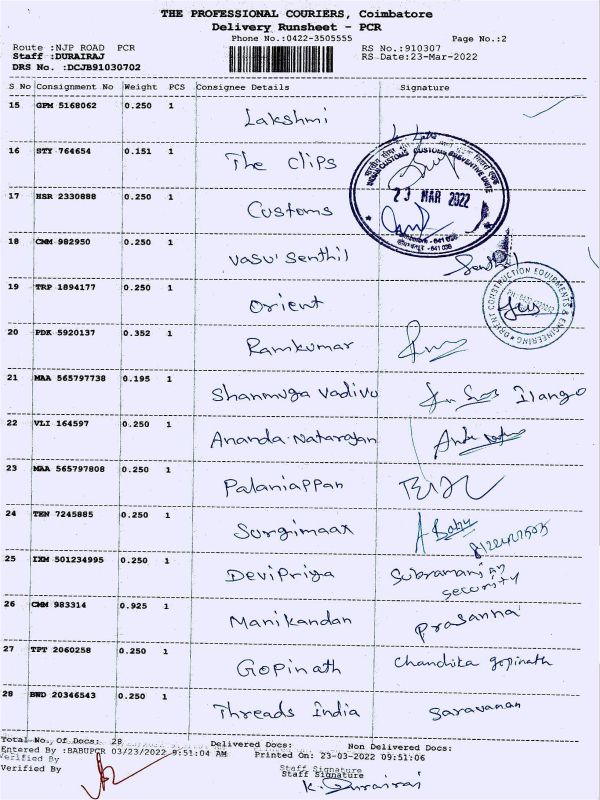 THE PROFESSIONAL COURIERS, Coimbatore
Delivery Runsheet - PCR
Phone No.:0422-3505555 Page No.:2
Route :NJP ROAD PCR RS No.:910307
Staff :DURAIRAJ RS Date:23-Mar-2022
DRS No. :DCJB91030702
S No Consignment No Weight PCS Consignee Details Signature
15 GPM 5168062 0.250 1 Lakshmi
16 STY 764654 0.151 1 The Clips
INDIAN CUSTOMS CUSTOMS PREVENTIVE UNIT
23 MAR 2022
17 HSR 2330888 0.250 1 Customs
18 CMM 982950 0.250 1 Vasu Senthil Senthil
19 TRP 1894177 0.250 1 Orient
ORIENT CONSTRUCTION EQUIPMENTS & ENGINEERING
20 PDK 5920137 0.352 1 Ramkumar
21 MAA 565797738 0.195 1 Shanmuga Vadivu Ilango
22 VLI 164597 0.250 1 Ananda Natarajan
23 MAA 565797808 0.250 1 Palaniappan
24 TEN 7245885 0.250 1 Surgimaax
25 IXM 501234995 0.250 1 DeviPriya Subramaniyan
security
26 CMM 983314 0.925 1 Manikandan Prasanna
27 TPT 2060258 0.250 1 Gopinath Chandika gopinath
28 BWD 20346543 0.250 1 Threads India Saravanan
Total No. Of Docs: 28 Delivered Docs: Non Delivered Docs:
Entered By :BABUPCR 03/23/2022 9:51:04 AM Printed On: 23-03-2022 09:51:06
Verified By Staff Signature
Verified By Staff Signature
K. Durairaj